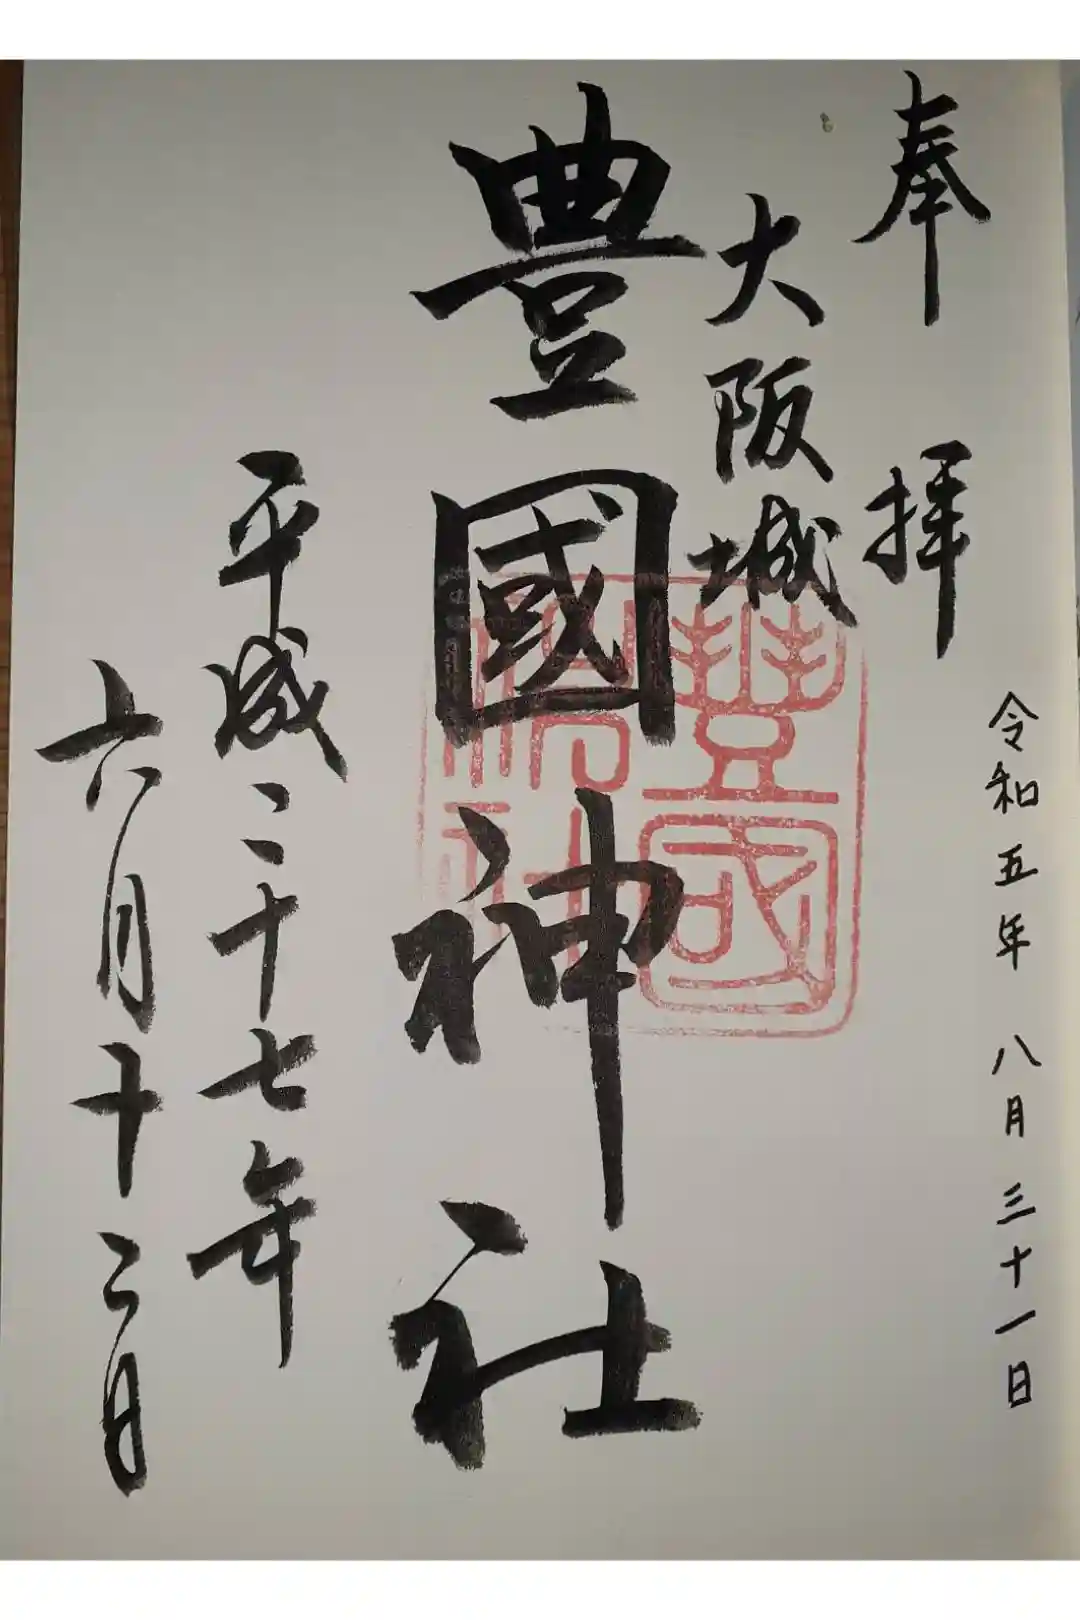 奉拝
令和五年 八月三十一日
大阪城
豊國神社
豊國神社
平成二十七年
六月十二日